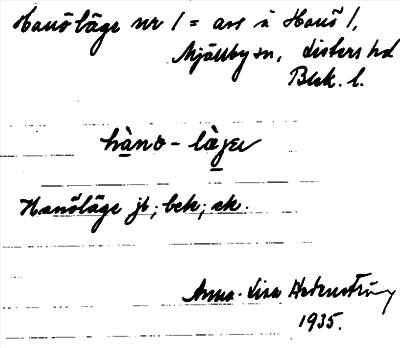 Hanöläge nr 1 = ass å Hanö 1,
Mjällby sn, Listers hd
Blek. l.
hànö - làgev
Hanöläge jb; bek; ek.
Anna-Lisa Hedenström
1935.